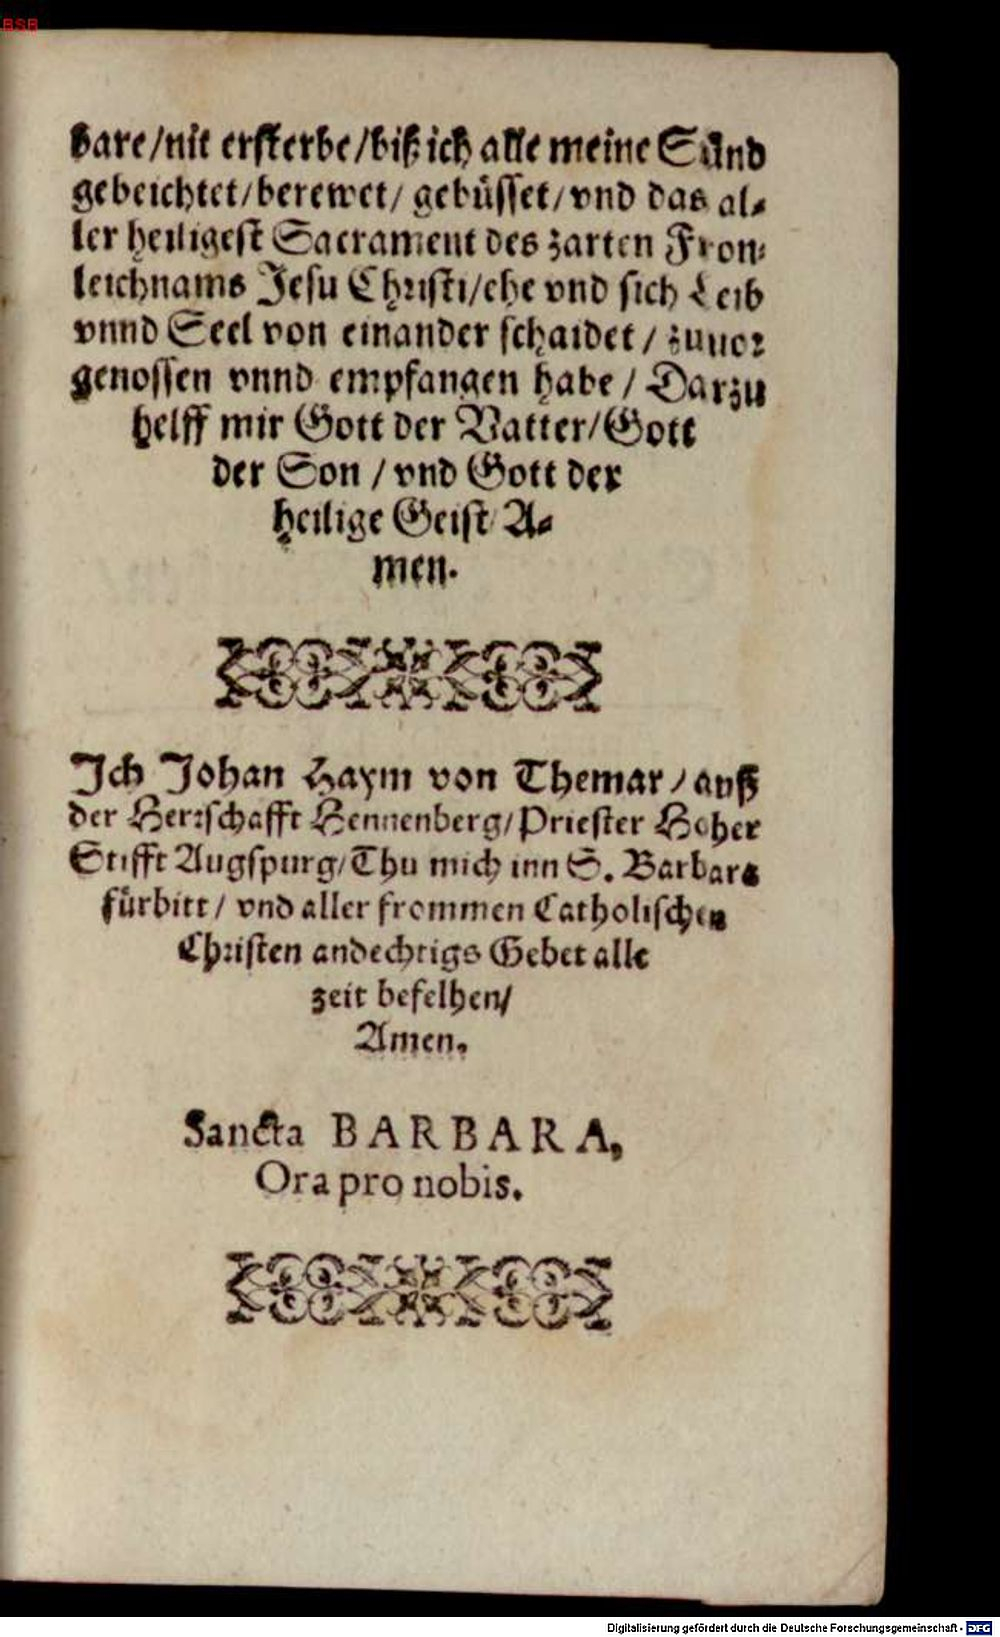 BSB
bare/nit ersterbe/biß ich alle meine Sünd
gebeichtet/berewet/ gebüsset/vnd das al-
ler heiligest Sacrament des zarten Fron-
leichnams Jesu Christi/ehe vnd sich Leib
vnnd Seel von einander schaidet / zuuor
genossen vnnd empfangen habe / Darzu
helff mir Gott der Vatter/Gott
der Son / vnd Gott der
heilige Geist A-
men.
Ich Johan Haym von Themar / auß
der Herrschafft Hennenberg/Priester Hoher
Stifft Augspurg/Thu mich inn S. Barbara
fürbitt / vnd aller frommen Catholischen
Christen andechtigs Gebet alle
zeit befelhen/
Amen.
Sancta BARBARA,
Ora pro nobis.
Digitalisierung gefördert durch die Deutsche Forschungsgemeinschaft - DFG